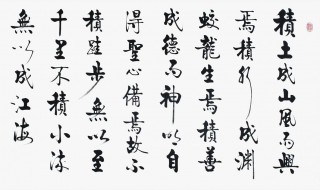 積土成山風雨興
焉積水成淵
蛟龍生焉積善
成德而神明自
得聖心備焉故不
積跬步無以至
千里不積小流
無以成江海